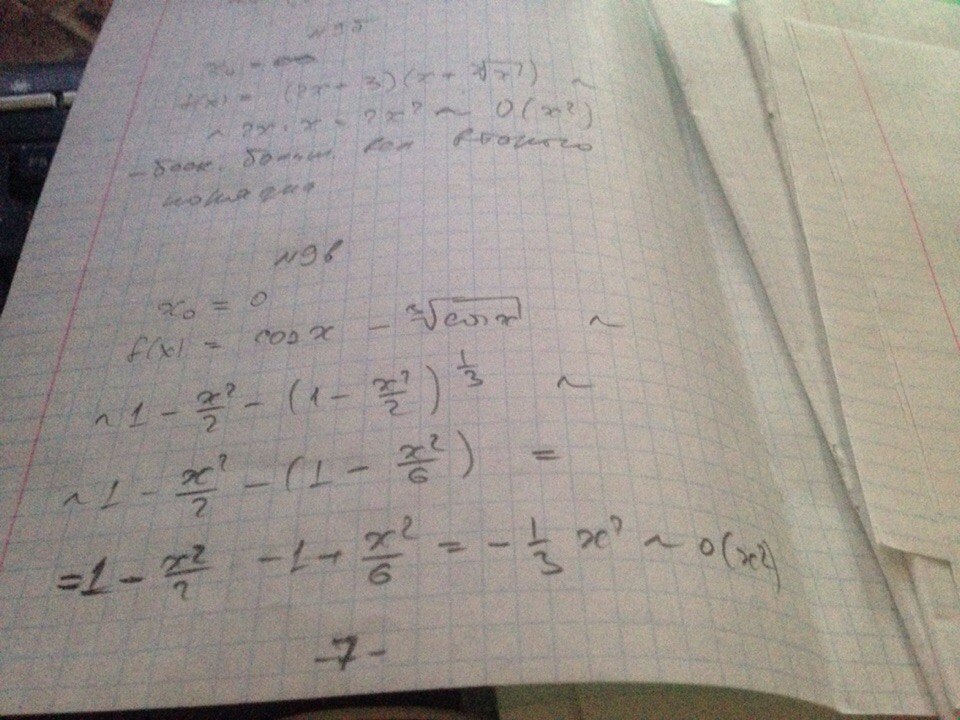 x₀ = ∞
f(x) = (2x + 3)(x + ∛x²) ~
~ 2x · x = 2x² ~ O(x²)
– беск. больш. второго
порядка
№9в
x₀ = 0
f(x) = cos x − ∛cos x ~
~ 1 − x²/2 − (1 − x²/2)^(1/3) ~
~ 1 − x²/2 − (1 − x²/6) =
= 1 − x²/2 − 1 + x²/6 = − 1/3 x² ~ O(x²)
-7-